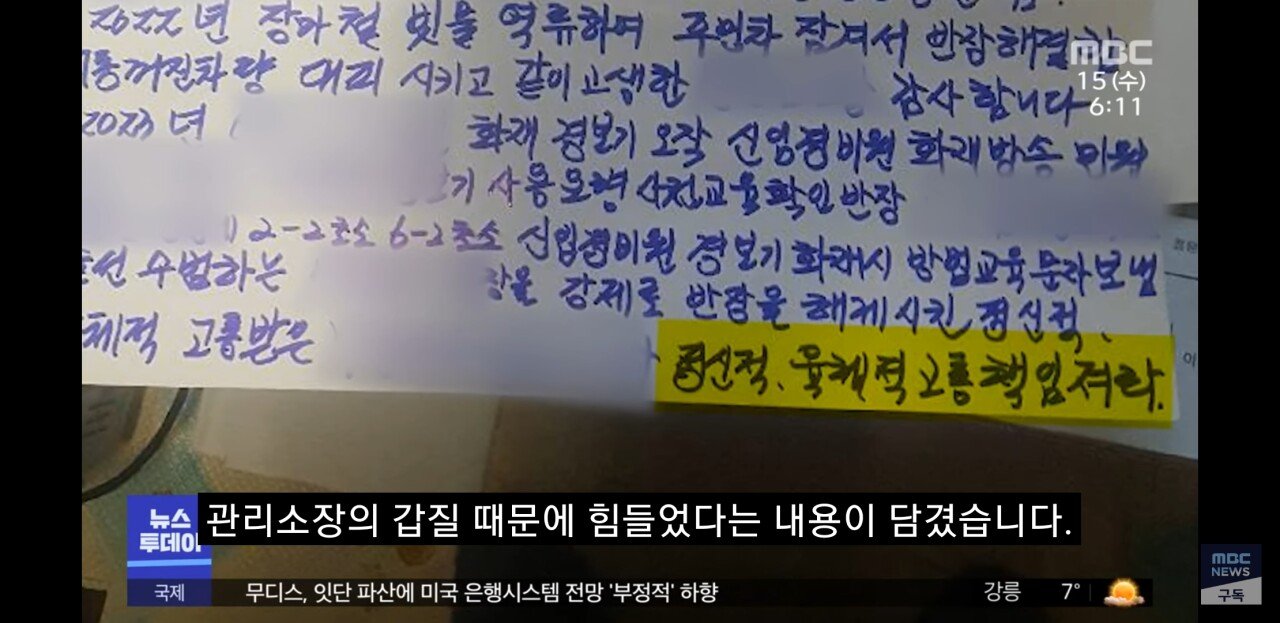 2022년 장마철 빗물 역류하여 주인차 잠겨서 반장해결함
시동꺼진차량 대피 시키고 같이고생한 감사합니다
2023년 화재 경보기 오작 신임경비원 화재방송 미숙
기 사용요령 사전교육확인반장
2-2초소 6-2초소 신입경비원 경보기화재시 방법교육문자보냄
솔선 수범하는 장을 강제로 반장을 해제시킨 정신적,
체적 고통받은
정신적, 육체적 고통책임져라.
MBC
15(수)
6:11
뉴스
투데이
관리소장의 갑질 때문에 힘들었다는 내용이 담겼습니다.
국제 무디스, 잇단 파산에 미국 은행시스템 전망 '부정적' 하향 강릉 7°
MBC
NEWS
구독